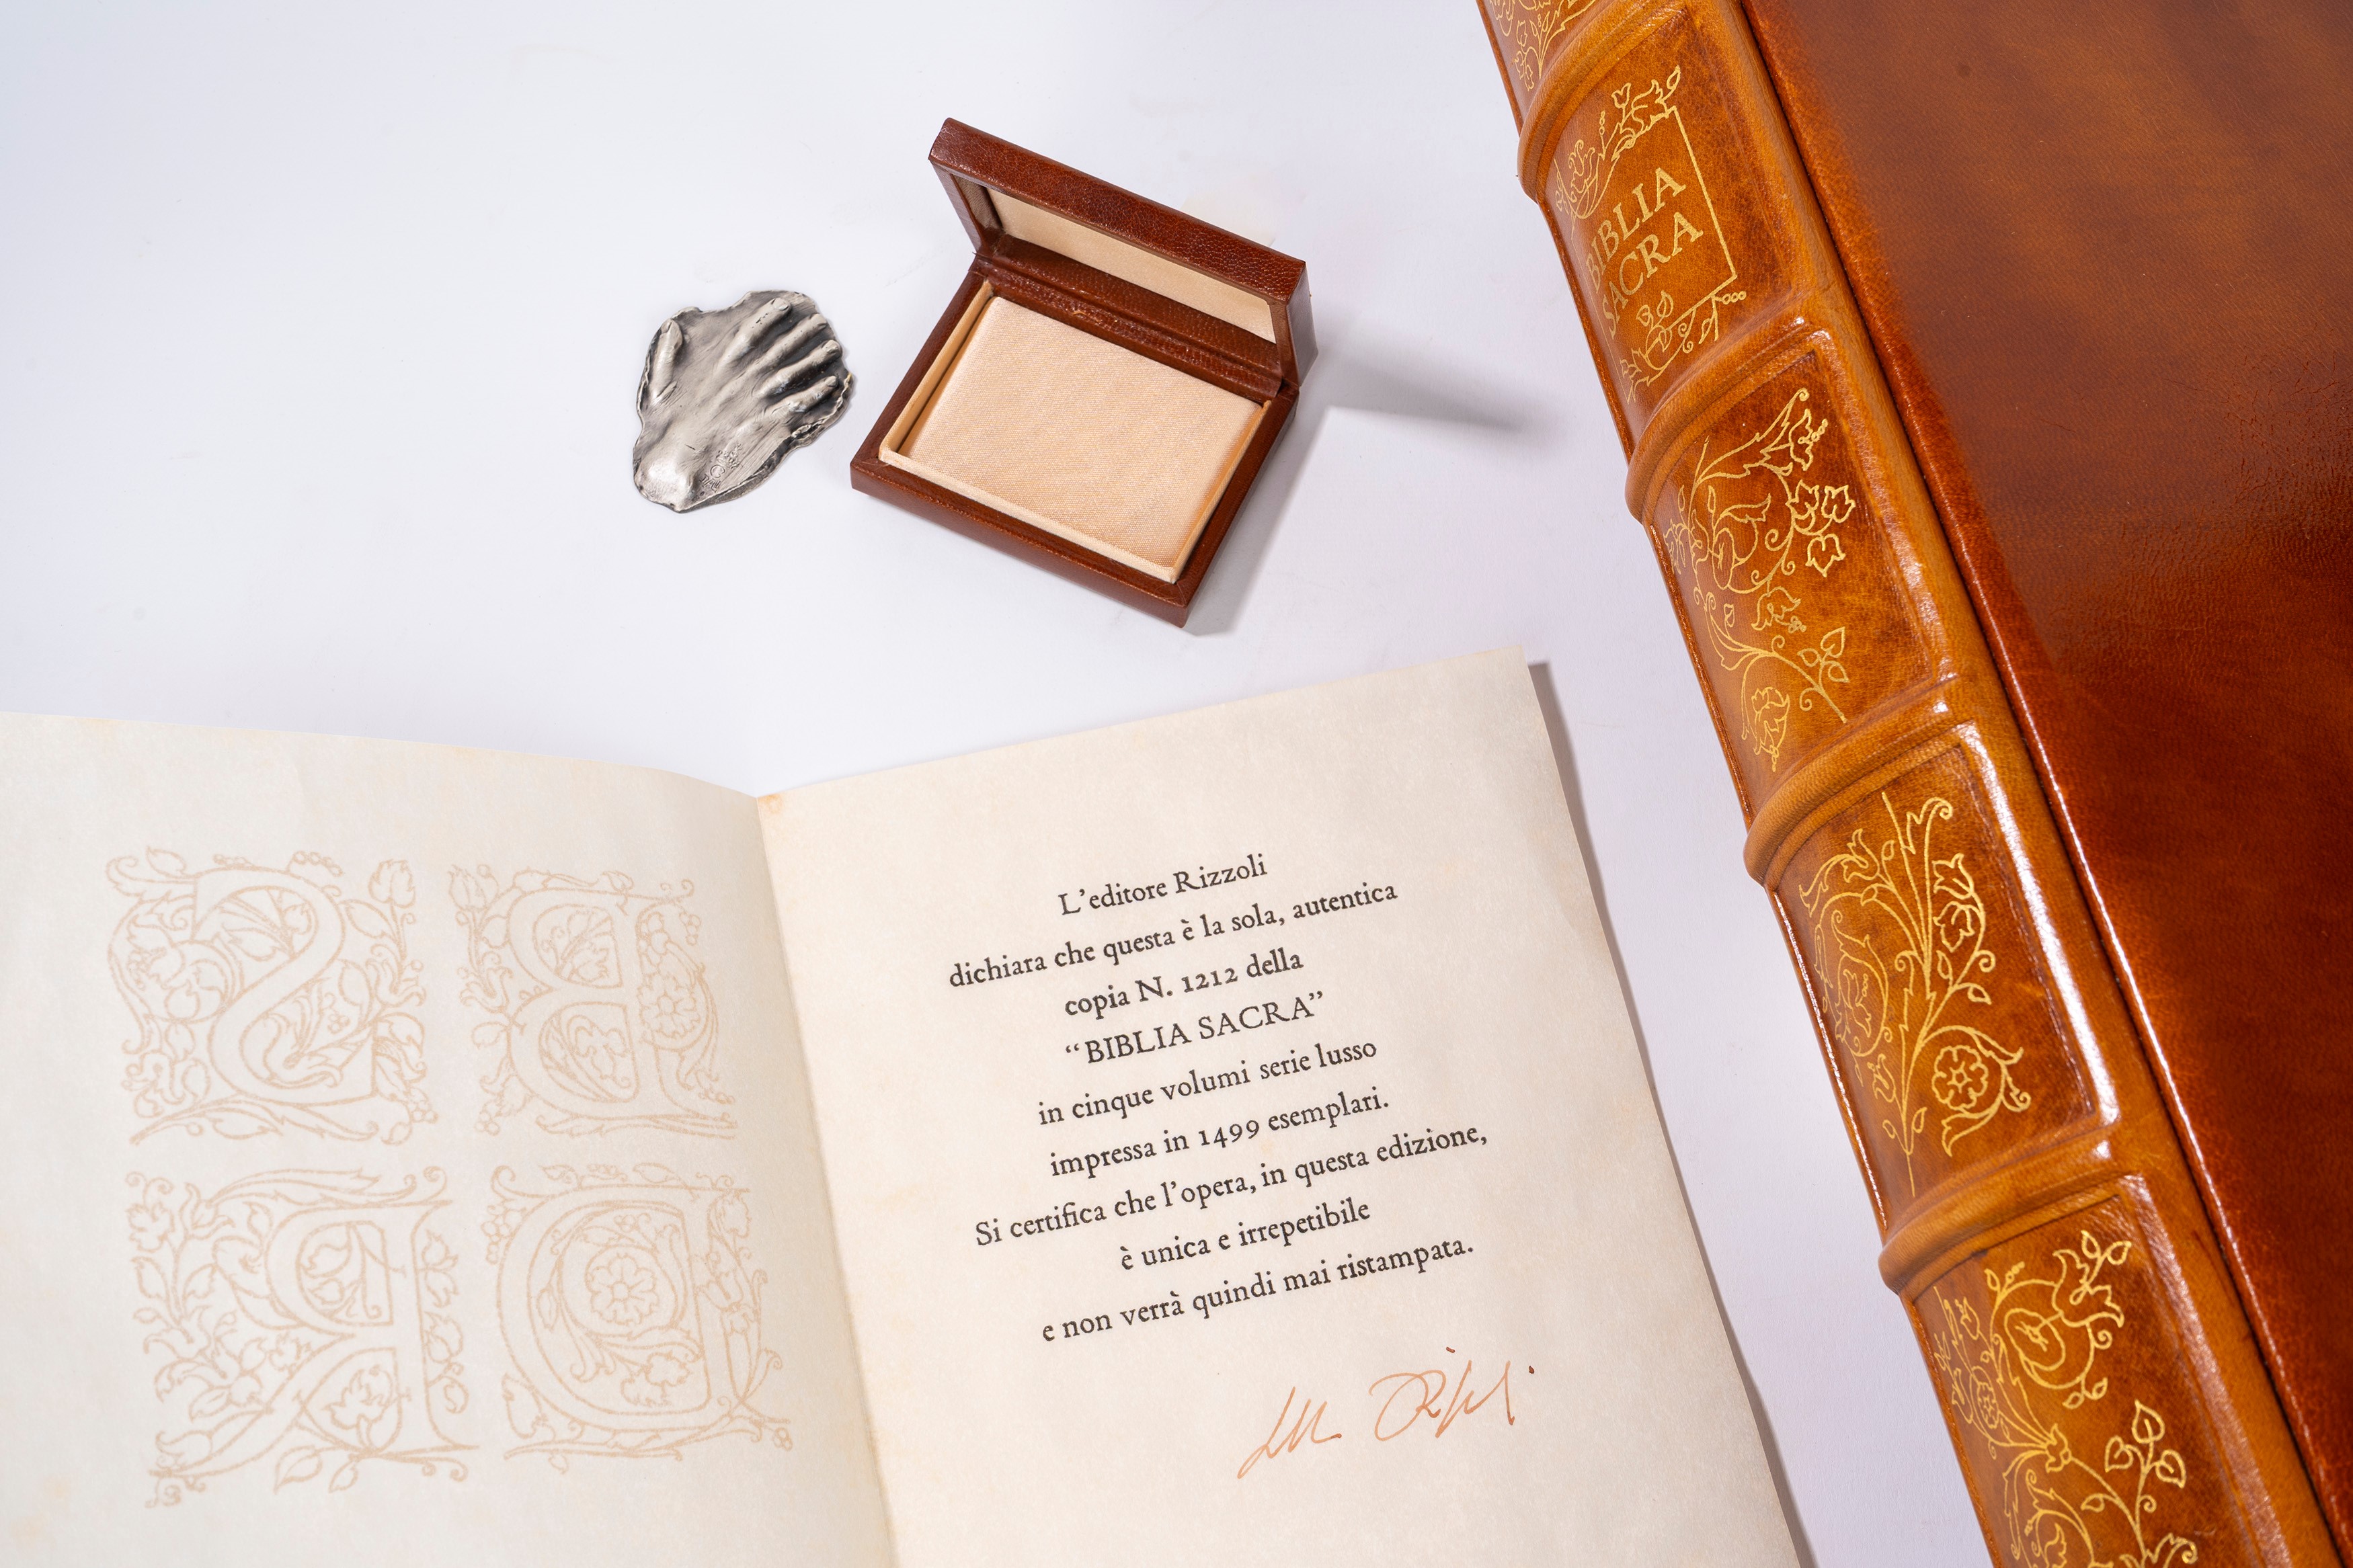 BIBLIA
SACRA
L’editore Rizzoli
dichiara che questa è la sola, autentica
copia N. 1212 della
“BIBLIA SACRA”
in cinque volumi serie lusso
impressa in 1499 esemplari.
Si certifica che l’opera, in questa edizione,
è unica e irrepetibile
e non verrà quindi mai ristampata.